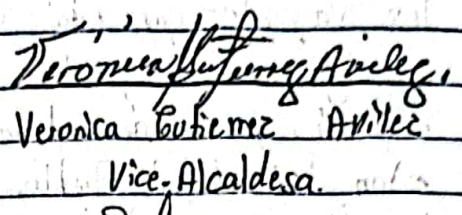 Verónica Gutierrez Aviles.
Veronica Gutierrez Aviles
Vice-Alcaldesa.